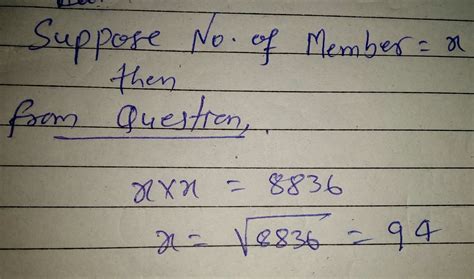 Suppose No. of Member = x
then
from Question,
x × x = 8836
x = √8836 = 94